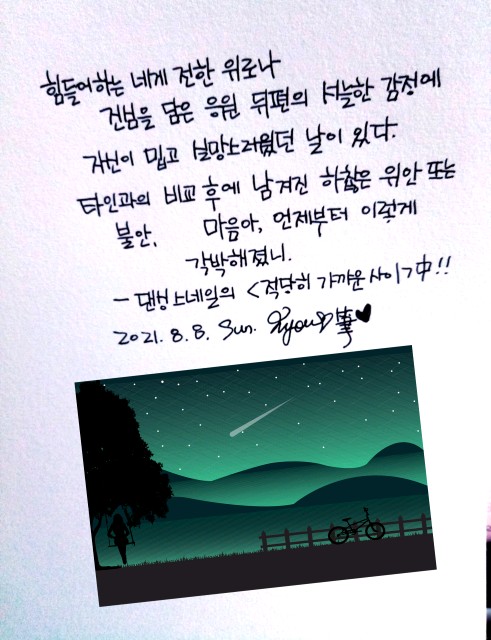 힘들어하는 네게 전한 위로나
진심을 담은 응원 뒤편의 서늘한 감정에
자신이 밉고 실망스러웠던 날이 있다.
타인과의 비교 후에 남겨진 하찮은 위안 또는
불안. 마음아, 언제부터 이렇게
각박해졌니.
- 댄싱스네일의 <적당히 가까운 사이>中!!
2021. 8. 8. Sun.